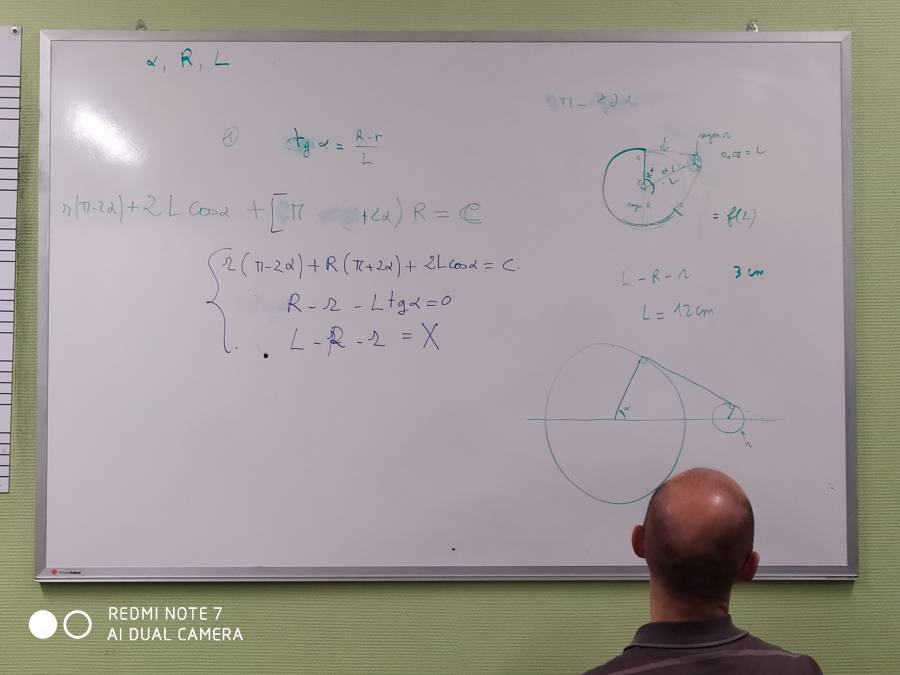 α, R, L
① tg α = R-r / L
r(π-2α) + 2L cosα + [ π +2α) R = C
r(π-2α) + R(π+2α) + 2L cosα = C.
R - r - L tg α = 0
L - R - r = X
π - 2α
rayon r
O₁O2 = L
α
L
rayon R
= f(L)
L - R - r 3 cm
L = 12 cm
α
r
REDMI NOTE 7
AI DUAL CAMERA